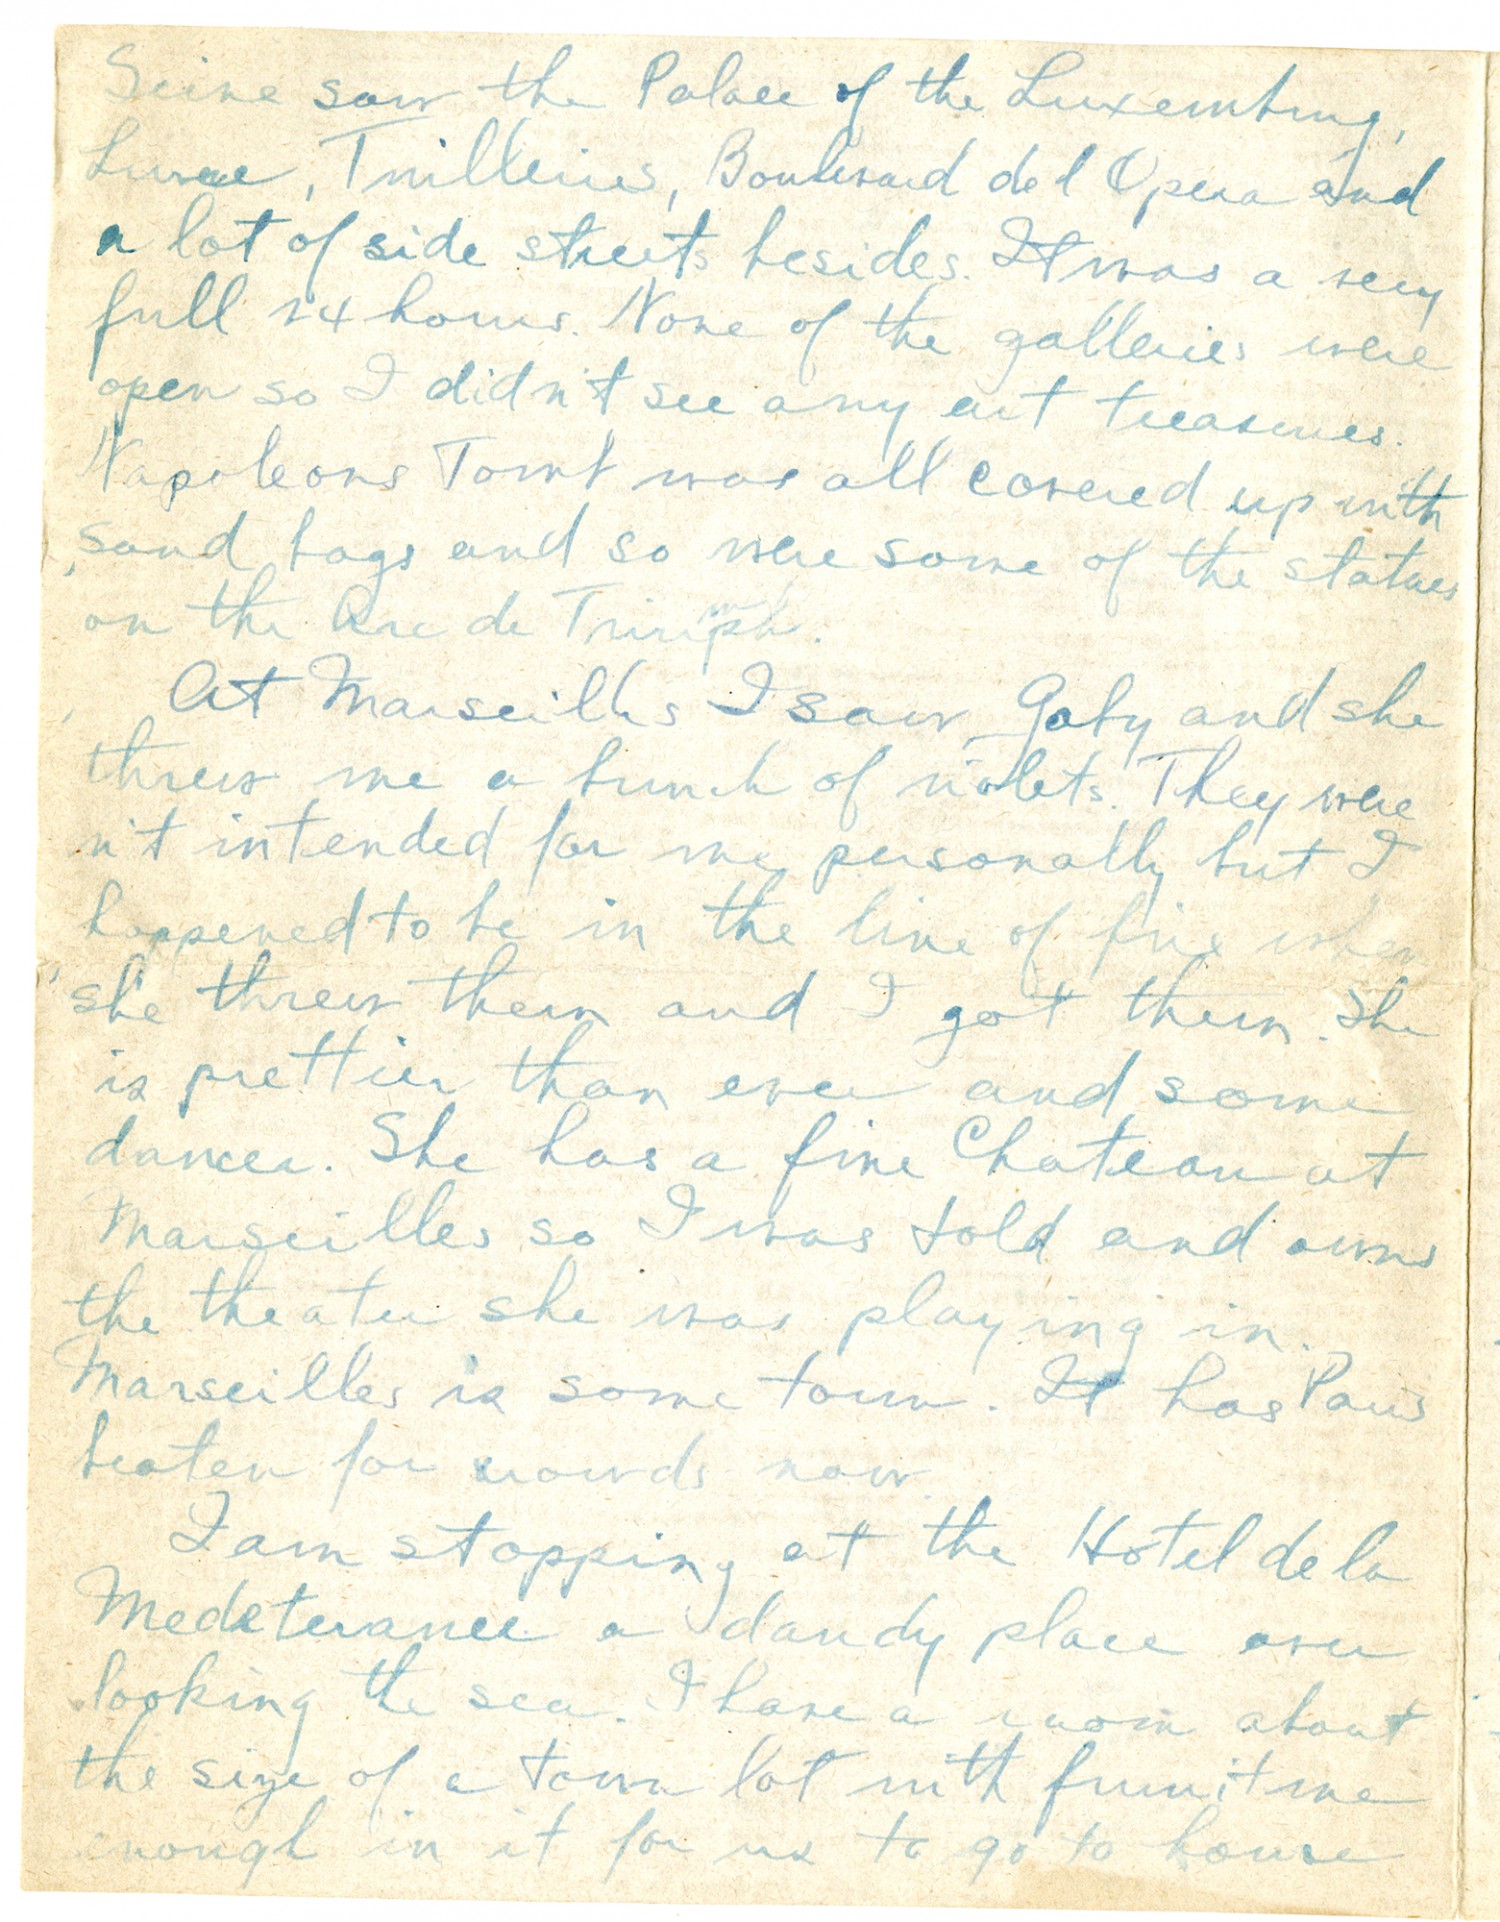 Seine saw the Palace of the Luxemburg,
Luvre, Tuilleries, Boulevard de l Opera and
a lot of side streets besides. It was a very
full 24 hours. None of the galleries were
open so I didn't see any art treasures.
Napoleons Tomb was all covered up with
sand bags and so were some of the statues
on the Arc de Triumph.
At Marseilles I saw Gaby and she
threw me a bunch of violets. They were
n't intended for me personally but I
happened to be in the line of fire when
she threw them and I got them. She
is prettier than ever and some
dancer. She has a fine Chateau at
Marseilles so I was told and owns
the theater she was playing in.
Marseilles is some town. It has Paris
beaten for crowds now.
I am stopping at the Hotel de la
Mediteranee a dandy place over
looking the sea. I have a room about
the size of a town lot with furnitme
enough in it for us to go to house